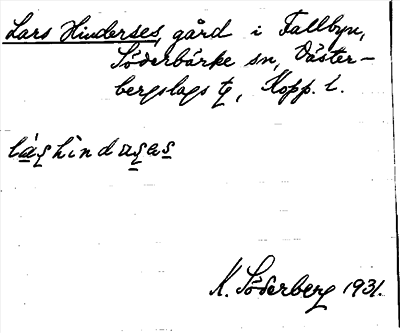 Lars Hinderses, gård i Fallbyn,
Söderbärke sn, Väster-
bergslags tg, Kopp. l.
lashindasas
K. Söderberg 1931.